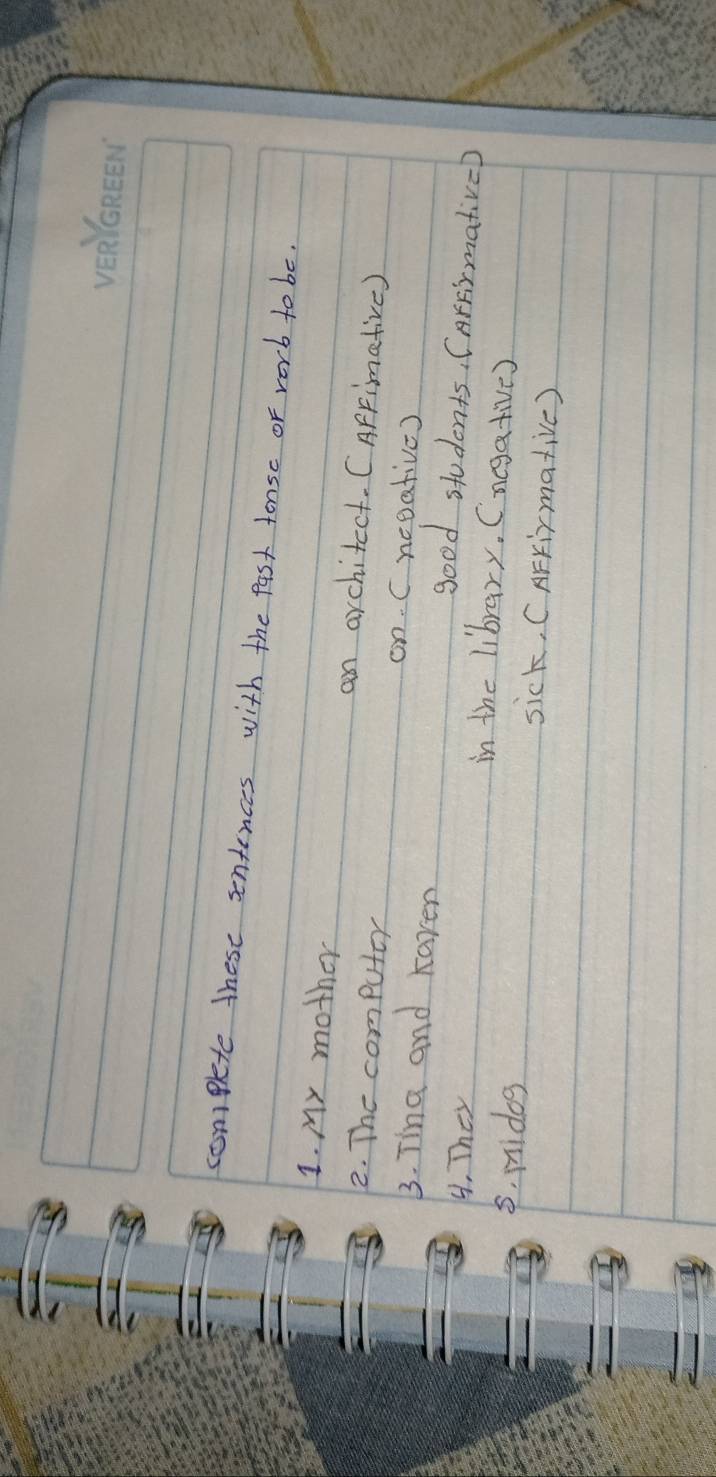 VERYGREEN
complete these sentences with the Past tense of verb to be.
1. My mother an architect. (AFFimative)
2. The computer on. (negative)
3. Tina and Karen good students. (AFFirmative)
4. They in the library. (negative)
5. Mi dog sick. (AFFirmative)